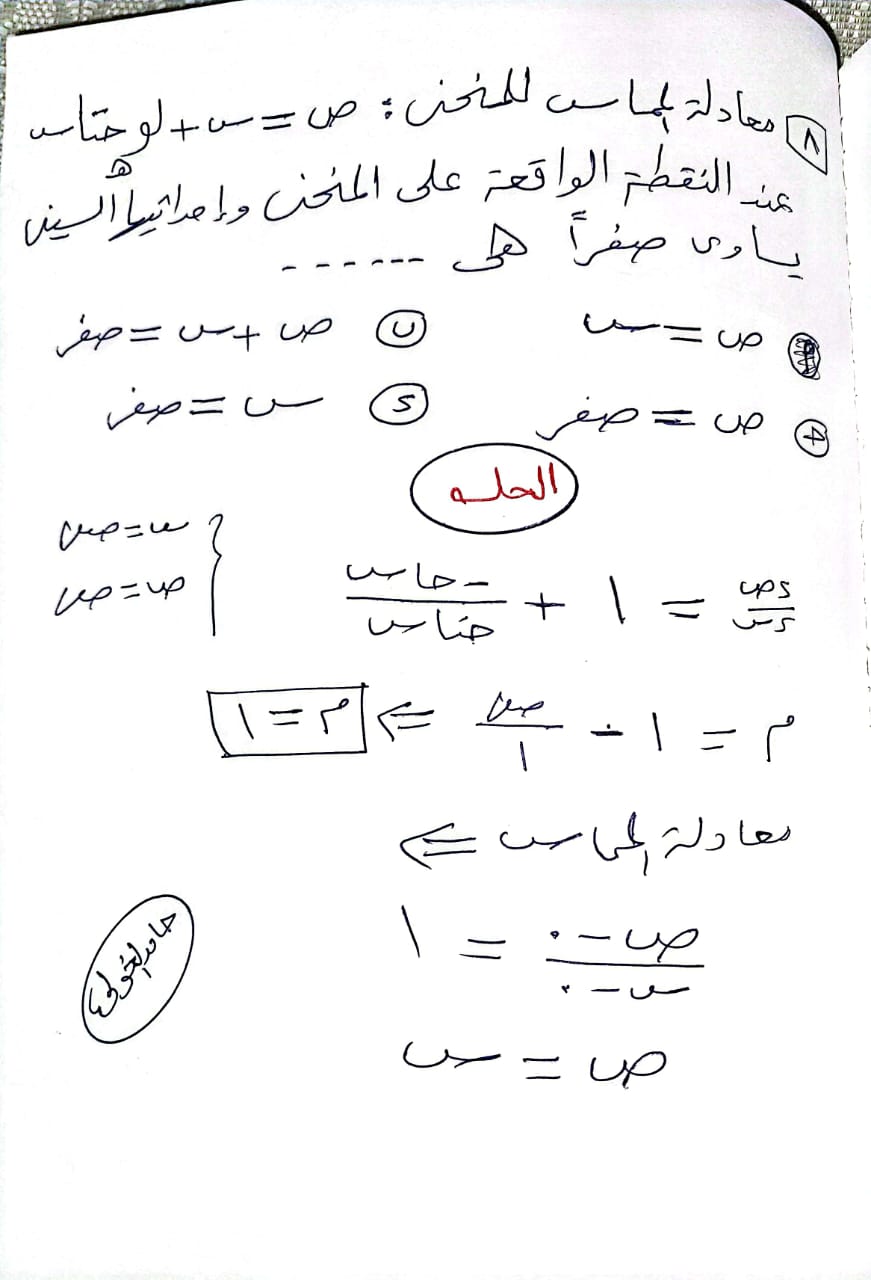 ٨ معادلة المماس للمنحنى : ص = س + لو جتاس
هـ
عند النقطة الواقعة على المنحنى وإحداثيها السينى
يساوى صفراً هى ------
ص = س ب ص + س = صفر
ج ص = صفر د س = صفر
الحل
ءص/ءس = ١ + -جاس/جتاس { س = صفر
ص = صفر
م = ١ - صفر/١ ⇐ م = ١
معادلة المماس ⇐
ص - ٠/س - ٠ = ١
ص = س